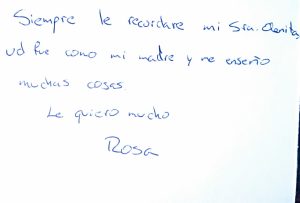 Siempre le recordare mi Sra. Clenita,
ud fue como mi madre y me enseño
muchas cosas
Le quiero mucho
Rosa